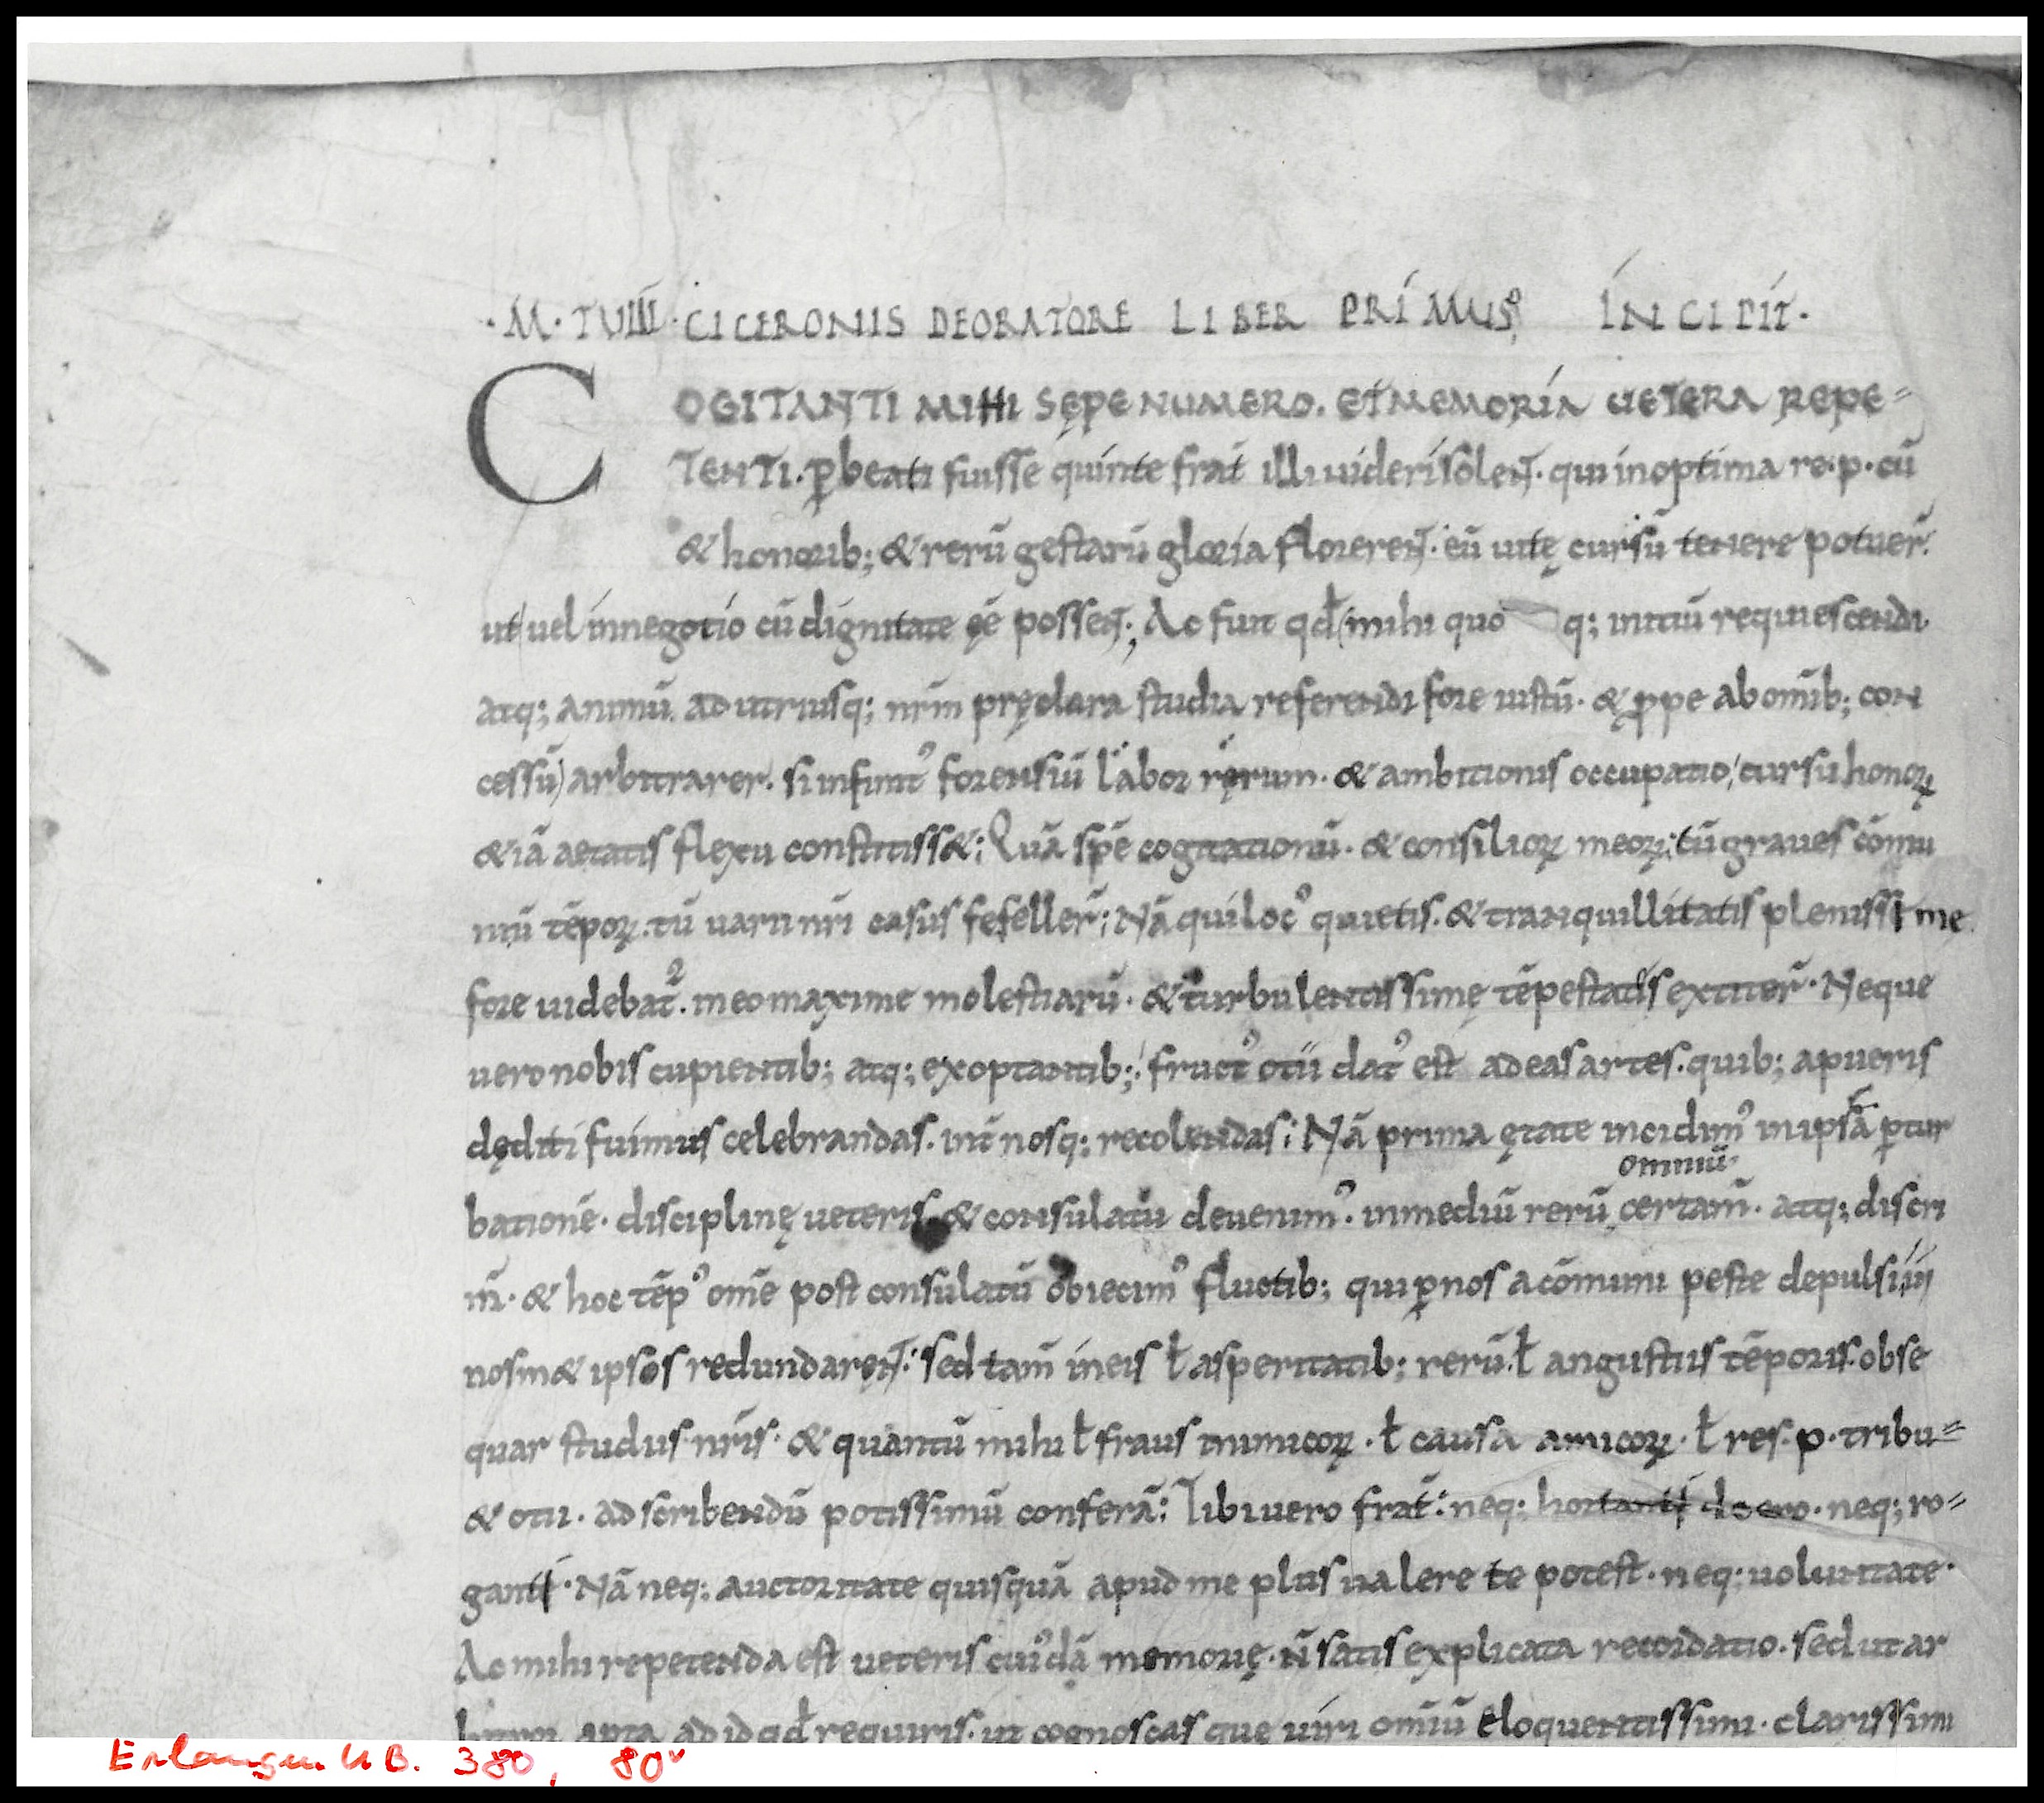 ·M·TVLLII·CICERONIS DEORATORE LIBER PRIMUS INCIPIT·
COGITANTI MIHI SĘPE NUMERO. ET MEMORIA UETERA REPE=
TENTI·p̲beati fuisse quinte frat̄ illi uideri solent̄· qui in optima re·p·cū
& honorib; & rerū gestarū gloria florerent̄· eū uitę cursū tenere potuer̄·
ut uel in negotio cū dignitate ęē possent̄; Ac fuit qd̄ mihi quo q; initiū requiescendi
atq; animū ad utriusq; nr̄m pręclara studia referendi fore iustū· & ꝓpe ab omīb; con
cessū arbitrarer· si infinit᾽ forensiū labor rerum· & ambitionis occupatio cursu honoꝝ
& iā aetatis flexu constitiss&; Quā spē cogitationū· & consilioꝝ meoꝝ; tū graues cōmu
niū tēpoꝝ· tū uarii nr̄i casus fefeller̄; Nā qui loc᾽ quietis· & tranquillitatis plenissime
fore uidebat᾽· in eo maxime molestiarū· & turbulentissimę tēpestatis extiter̄· Neque
uero nobis cupientib; atq; exoptantib; fruct᾽ otii dat᾽ est ad eas artes· quib; a pueris
dęditi fuimus celebrandas· int̄ nosq; recolendas; Nā prima ętate incidim᾽ in ipsā ꝑtur
omniū
batione· disciplinę ueteris & consulatu deuenim᾽· in mediū rerū certam̄· atq; discri
m̄· & hoc tēp᾽ om̄e post consulatū obiecim᾽ fluctib; qui ꝑ nos a cōmuni peste depulsi in
nosm& ipsos redundarent̄· sed tam̄ in eis ł asperitatib; rerū· ł angustiis tēporis· obse
quar studiis nr̄is· & quantū mihi ł fraus inimicoꝝ· ł causa amicoꝝ· ł res·p·tribu=
& otii· ad scribendū potissimū conferā; Tibi uero frat̄· neq; hortanti deero· neq; ro=
ganti· Nā neq; auctoritate quisquā apud me plus ualere te potest· neq; uoluntate·
Ac mihi repetenda est ueteris cui᾽dā memorię· n̄ satis explicata recordatio· sed ut ar
bitror apta ad id qd̄ requiris· ut cognoscas que uiri omiū eloquentissimi· clarissimi
Erlangen UB. 380, 80v